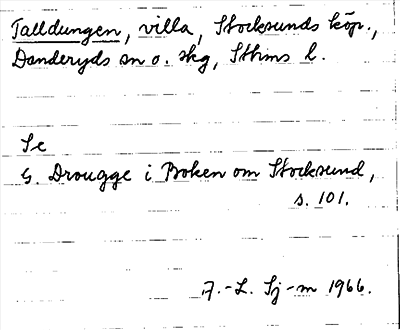 Talldungen, villa, Stocksunds köp.,
Danderyds sn o. skg, Sthlms l.
Se
G. Drougge i Boken om Stocksund,
s. 101.
A.-L. Sj-m 1966.